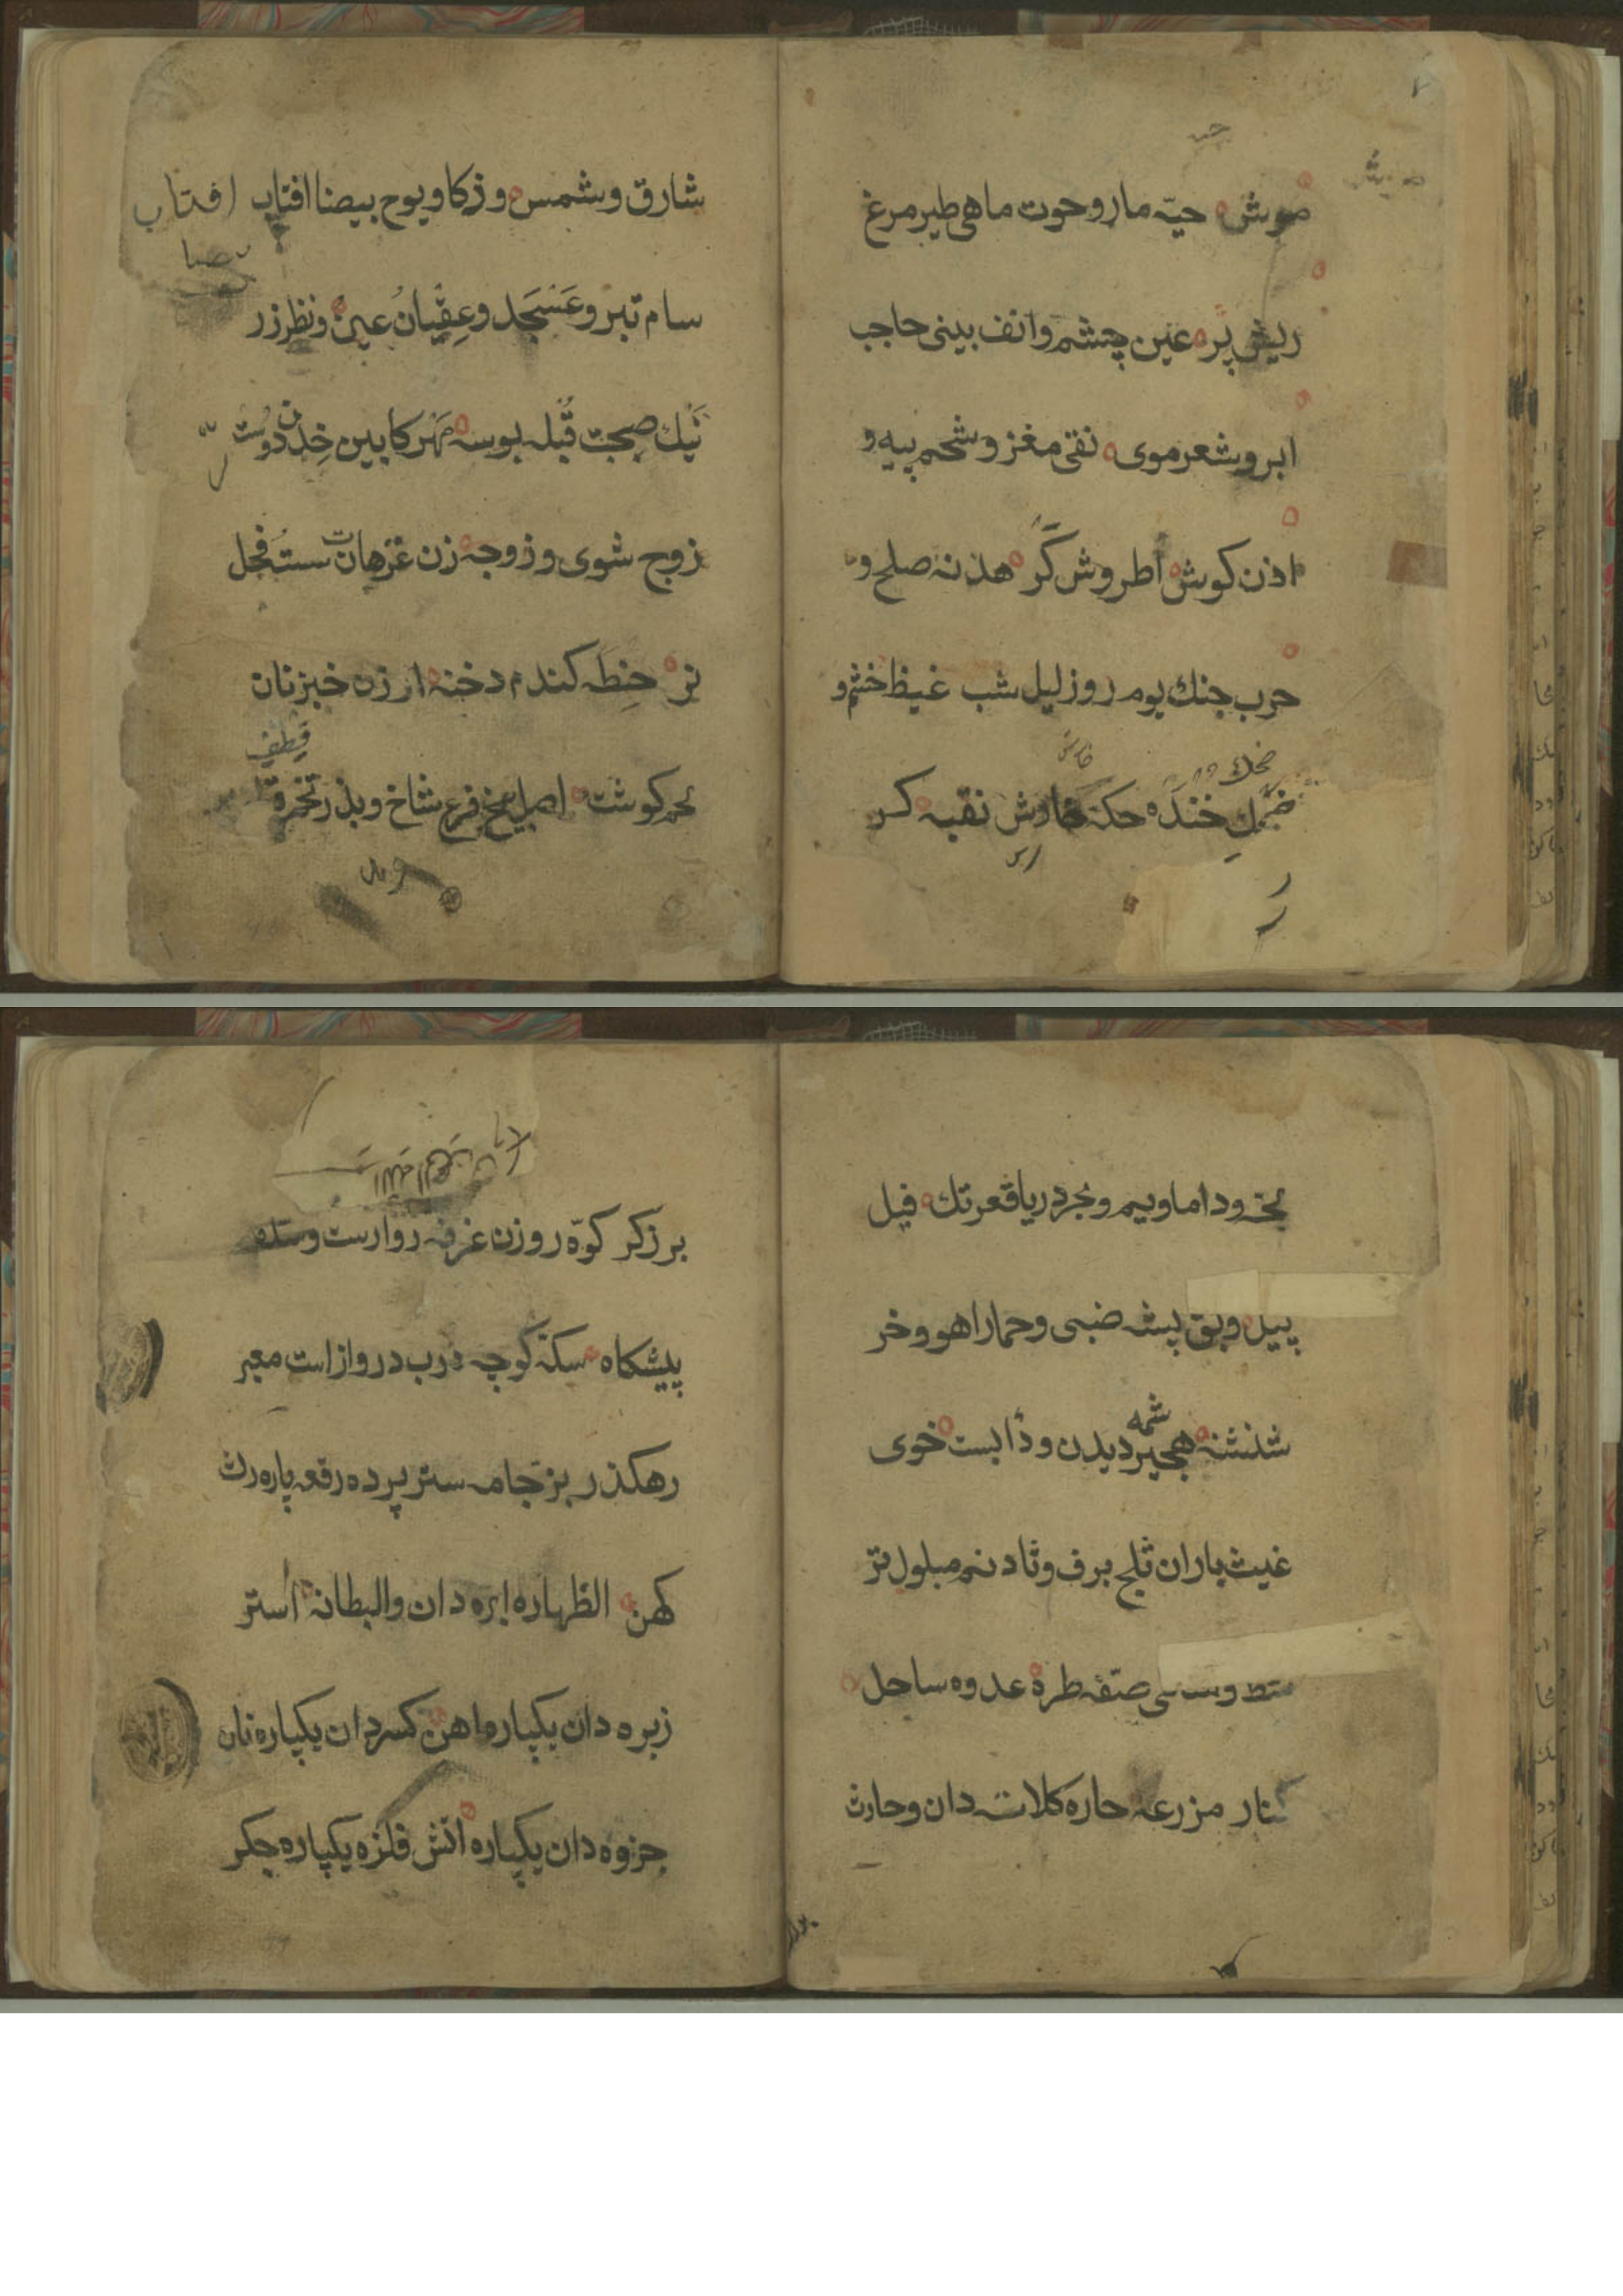 موش حیّه مار و حوت ماهی طیر مرغ
ریش پر عین چشم و انف بینی حاجب
ابرو شعر موی نقی مغز و شحم پیه و
اذن کوش اطروش کَر هدنه صلح و
حرب جنك یوم روز لیل شب غیظ خشم و
ضحك
ضحك خنده حکه خارش نقبه کر
شارق و شمس و ذکا و یوح بیضا افتاب افتاب
سام تبر و عَسْجَد و عِقْیانُ عین و نظر زر
نَیك صحبت قُبله بوسه مَهَر کابین خِدن دوست
زوج شوی و زوجه زن غرهان ست فجل
تر حِنطَه کندم دخنه ارزن خبز نان
لحم کوشت اصل بیخ فرع شاخ و بذر تخمره
یم و بحر دریا قعر تك فیل
پیل و بق پشه ضبی و حمار اهو و خر
شمه
شنشنه هجیر دیدن و دأبست خوی
غیث باران ثلج برف و ثاد نم مبلول تر
شط و صفه طره عدوه ساحل
کنار مزرعه حاره کلاته دان و حارث
برزکر کوّه روزن غرفه روارست و سده
پیشکاه سکه کوچه درب دروازاست معبر
رهکذر بز جامه ستر پرده رقعه پاره رث
کهن الظهاره ابره دان والبطانه أستر
زبره دان یکپاره اهن کسر دان یکپاره نان
جزوه دان یکپاره اتش فلزه یکپاره جکر